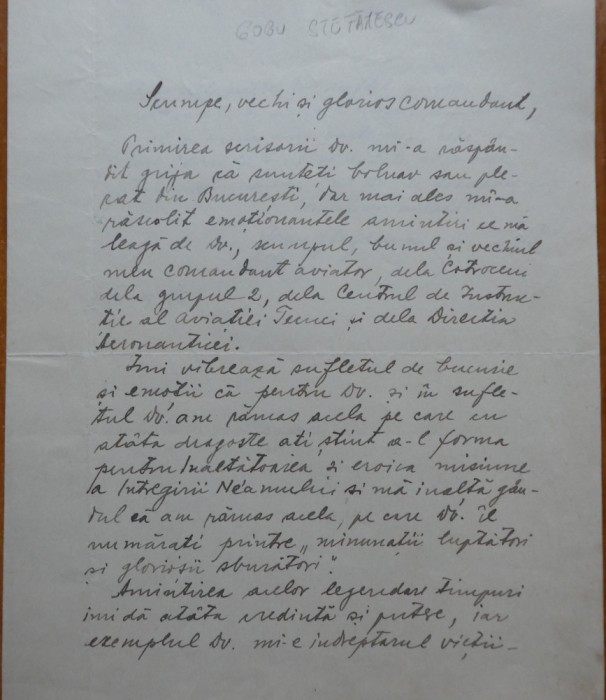 GOGU ȘTEFĂNESCU
Scumpe, vechi și glorios comandant,
Primirea scrisorii Dv. mi-a răspân-
dit grija că sunteți bolnav sau ple-
cat din București, dar mai ales mi-a
răscolit emoționantele amintiri ce mă
leagă de Dv., scumpul, bunul și vechiul
meu comandant aviator, dela Cotroceni
dela grupul 2, dela Centrul de Instruc-
ție al aviației Tecuci și dela Direcția
Aeronauticei.
Îmi vibrează sufletul de bucurie
și emoții că pentru Dv. și în sufle-
tul Dv. am rămas acela pe care cu
atâta dragoste ați știut a-l forma
pentru Inălțătoarea și eroica misiune
a Intregirii Neamului și mă inalță gân-
dul că am rămas acela, pe care Dv. îl
numărați printre „minunații luptători
și glorioșii sburători".
Amintirea acelor legendare timpuri
imi dă atâta credință și putere, iar
exemplul Dv. mi-e indreptarul vieții-